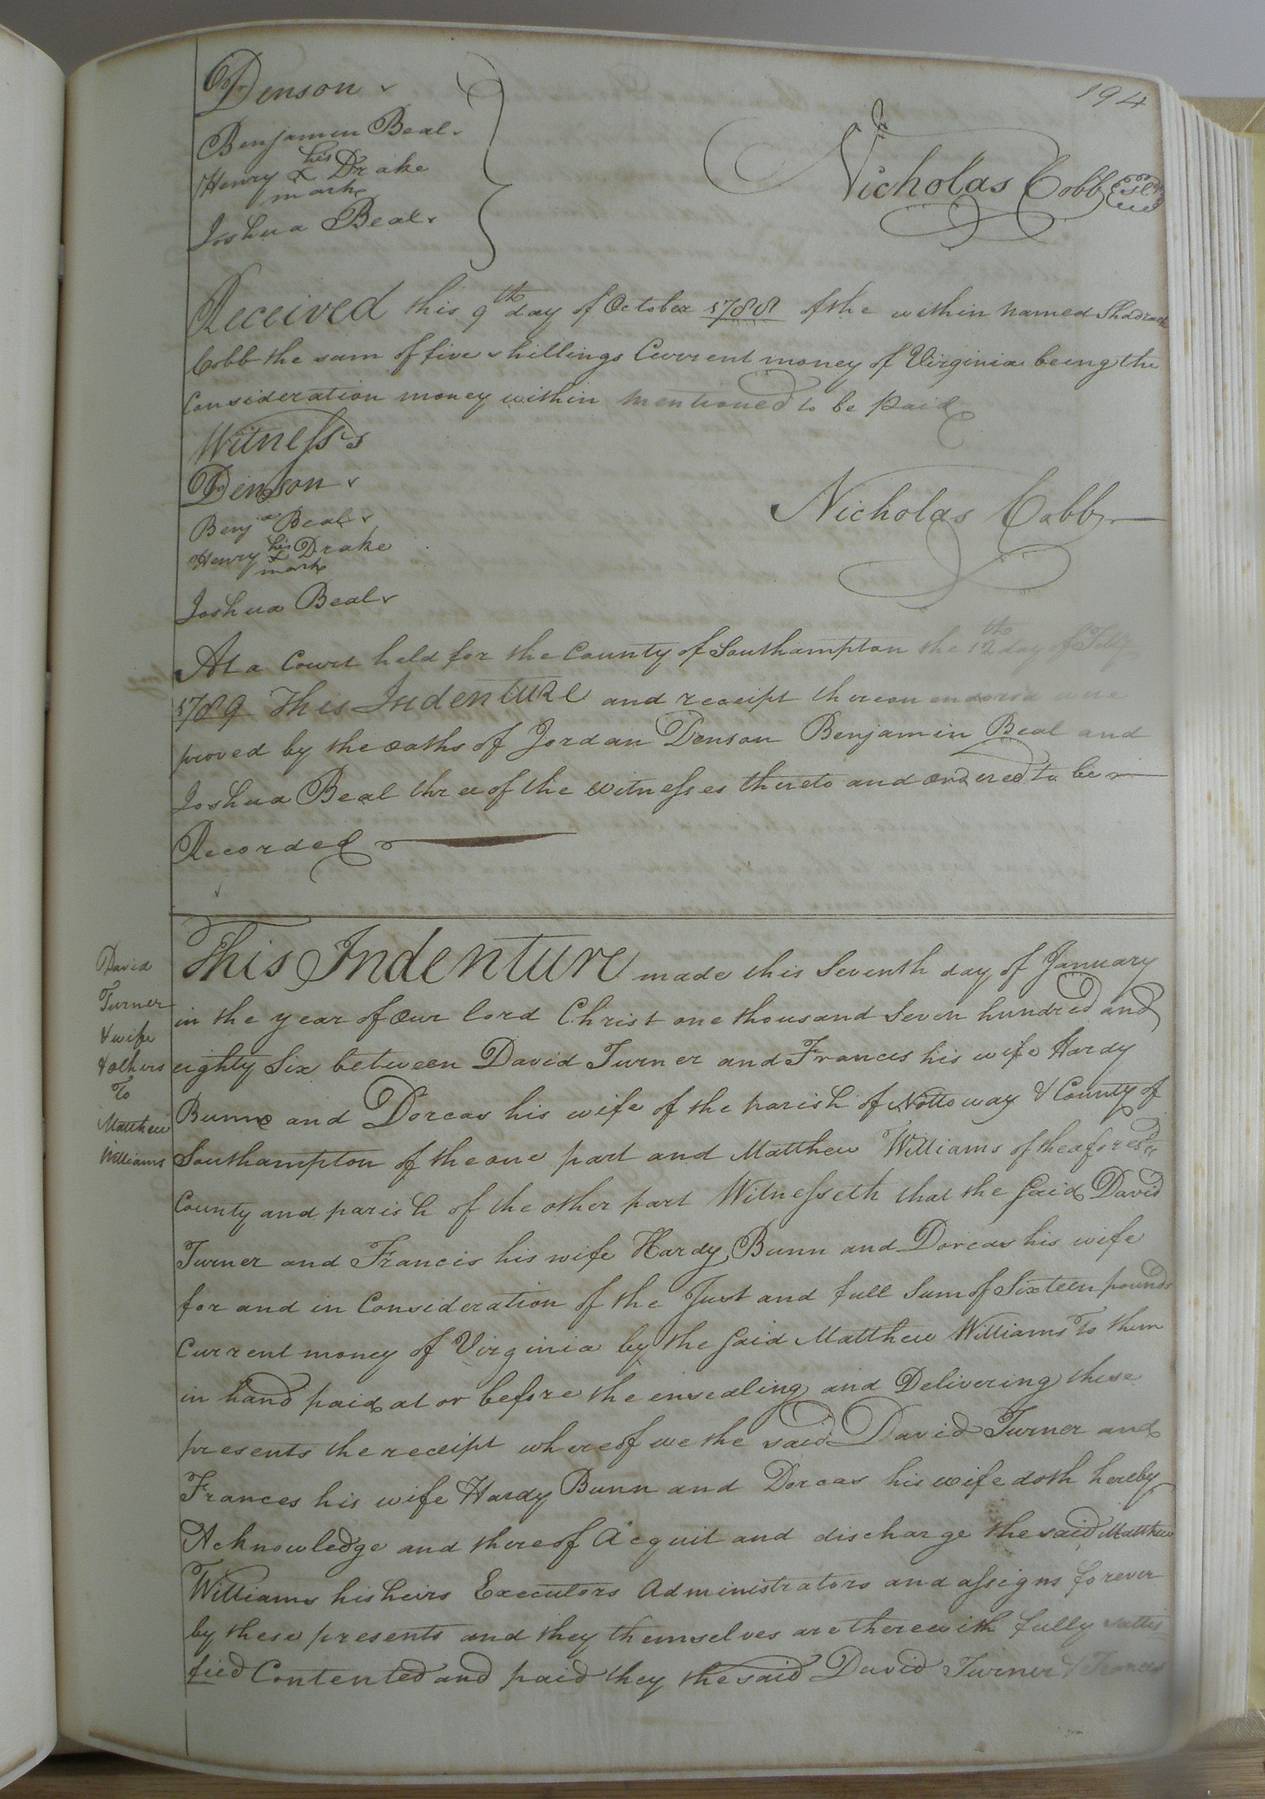 194
Jn Denson
Benjamin Beal
Henry his X mark Drake
Joshua Beal
Nicholas Cobb
Received this 9th day of October 1788 of the within named Shadrack
Cobb the sum of five shillings Current money of Virginia being the
Consideration money within mentioned to be paid
Witness
Jn Denson
Benja Beal
Henry his X mark Drake
Joshua Beal
Nicholas Cobb
At a Court held for the County of Southampton the 12th day of
1789 This Indenture and receipt thereon endorsd were
proved by the oaths of Jordan Denson Benjamin Beal and
Joshua Beal three of the witnesses thereto and ordered to be
Recorded
David
Turner
& wife
& others
To
Matthew
Williams
This Indenture made this Seventh day of January
in the year of our lord Christ one thousand Seven hundred and
eighty Six between David Turner and Frances his wife Hardy
Bunn and Dorcas his wife of the parish of Nottoway & County of
Southampton of the one part and Matthew Williams of the aforesd
County and parish of the other part Witnesseth that the Said David
Turner and Francis his wife Hardy Bunn and Dorcas his wife
for and in Consideration of the Just and full Sum of Sixteen pounds
Current money of Virginia by the Said Matthew Williams To them
in hand paid at or before the ensealing and Delivering these
presents the receipt whereof we the said David Turner and
Frances his wife Hardy Bunn and Dorcas his wife doth hereby
Acknowledge and thereof Acquit and discharge the said Matthew
Williams his heirs Executors Administrators and assigns forever
by these presents and they themselves are therewith fully sattis
fied Contented and paid they the said David Turner & Frances